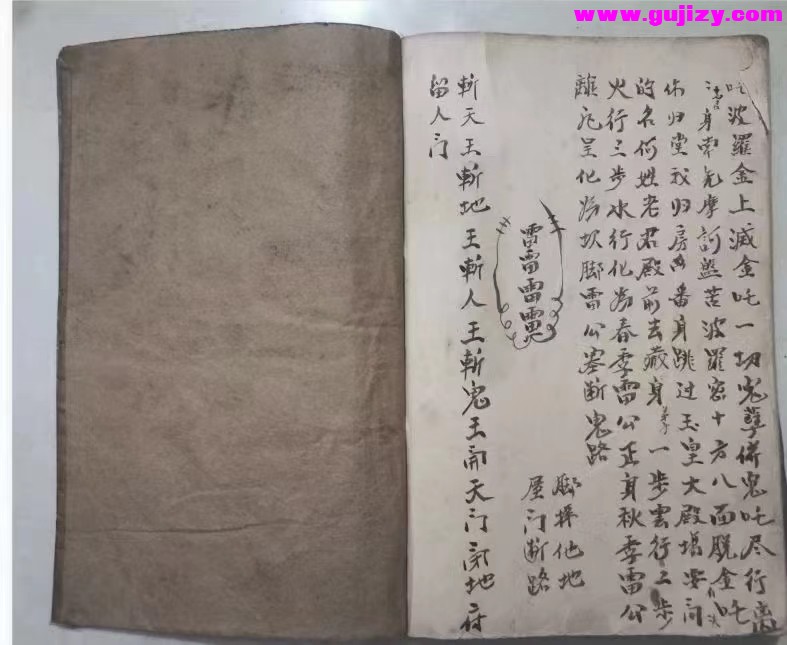 www.gujizy.com
吒波羅金上滅金吒一切鬼孽併鬼吒尽行离
身索先摩訶盤苦波羅密十方八面脱金吒
你归堂我归房番身跳过玉皇大殿塲安
的名何姓老君殿前去藏身弟子一步雲行二步
火行三步水行化為春季雷公正身秋季雷公
離克呈化為坎腳雷公塞断鬼路
腳採他地
屋门断路
雷雷雷
斬天王斬地王斬人王斬鬼王開天门闭地府
留人门